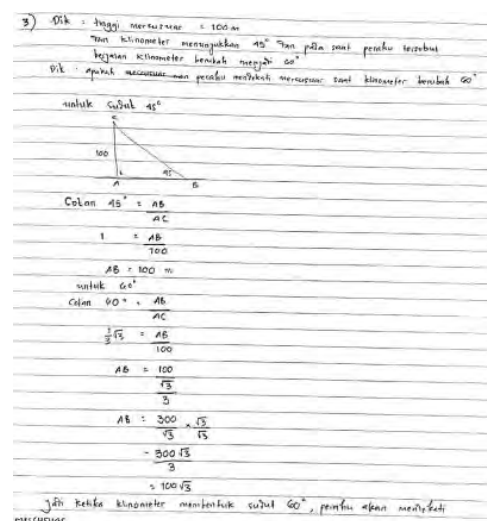 3) Dik : tinggi mercusuar = 100 m
klinometer menunjukkan 45° dan pada saat perahu tersebut
berjalan klinometer berubah menjadi 60°
Dit : apakah perahu mendekati mercusuar saat klinometer berubah 60°
untuk sudut 45°
C
100
45
A B
Cotan 45° = AB/AC
1 = AB/100
AB = 100 m
untuk 60°
Cotan 60° = AB/AC
1/3 √3 = AB/100
AB = 100/(√3/3)
AB = 300/√3 × √3/√3
= 300√3/3
= 100√3
Jadi ketika klinometer membentuk sudut 60°, perahu akan mendekati
mercusuar